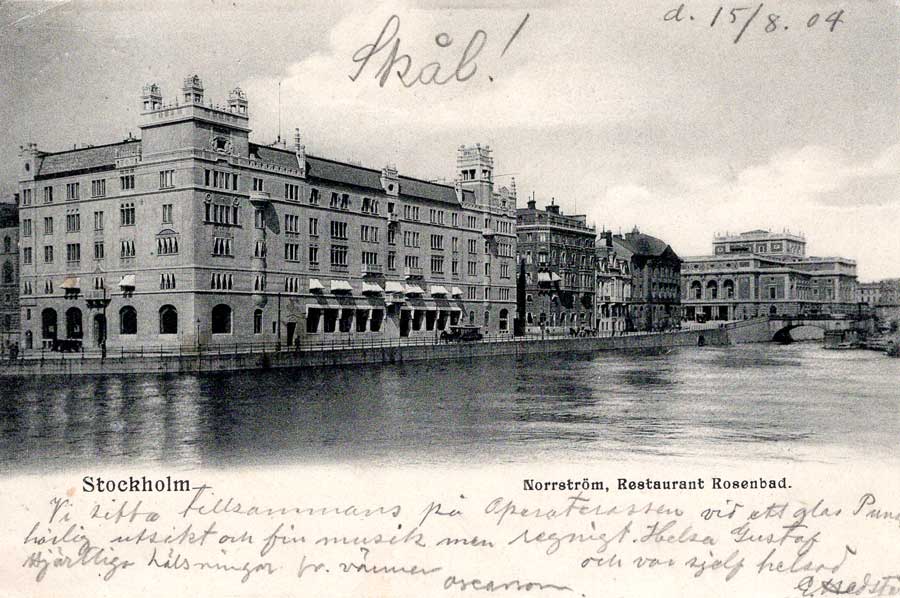 Skål! d. 15/8. 04
Stockholm Norrström, Restaurant Rosenbad.
Vi sitta tillsammans på Operaterassen vid ett glas
härlig utsikt och fin musik men regnigt. Helsa Gustaf
Hjärtliga hälsningar fr. vänner och var sjelf helsad